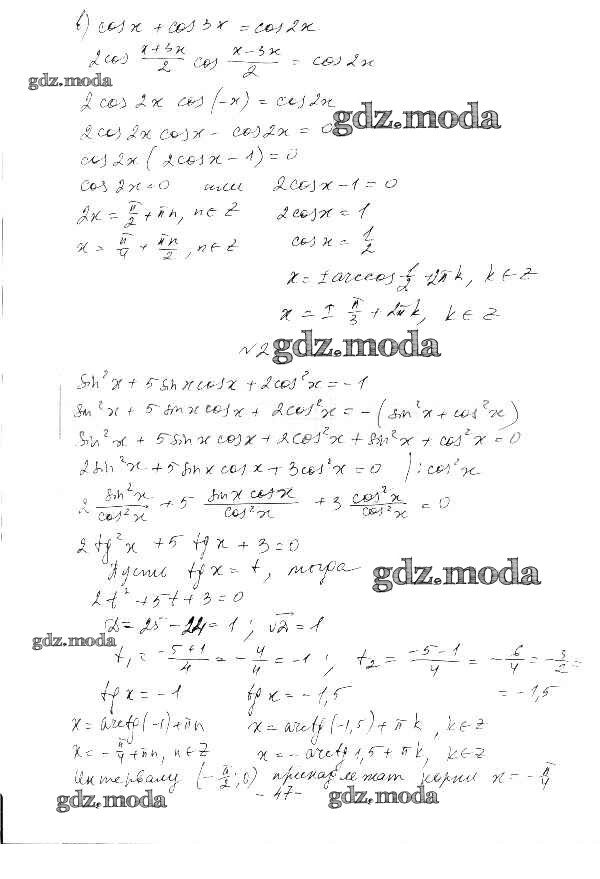 в) cosx + cos3x = cos2x
2cos (x+3x)/2 cos (x-3x)/2 = cos2x
gdz.moda
2cos2x cos(-x) = cos2x
2cos2x cosx - cos2x = 0
gdz.moda
cos2x(2cosx-1)=0
cos2x=0 или 2cosx-1=0
2x = π/2 + πn, n∈Z 2cosx=1
x = π/4 + πn/2, n∈Z cosx = 1/2
x = ± arccos 1/2 + 2πk, k∈Z
x = ± π/3 + 2πk, k∈Z
№2
gdz.moda
sin²x + 5sinxcosx + 2cos²x = -1
sin²x + 5sinxcosx + 2cos²x = -(sin²x + cos²x)
sin²x + 5sinxcosx + 2cos²x + sin²x + cos²x = 0
2sin²x + 5sinxcosx + 3cos²x = 0 ) : cos²x
2 sin²x/cos²x + 5 sinxcosx/cos²x + 3 cos²x/cos²x = 0
2tg²x + 5tgx + 3 = 0
Пусть tgx = t, тогда
gdz.moda
2t² + 5t + 3 = 0
D = 25 - 24 = 1; √D = 1
gdz.moda
t₁ = (-5+1)/4 = -4/4 = -1; t₂ = (-5-1)/4 = -6/4 = -3/2 =
= -1,5
tgx = -1 tgx = -1,5
x = arctg(-1) + πn x = arctg(-1,5) + πk, k∈Z
x = -π/4 + πn, n∈Z x = -arctg1,5 + πk, k∈Z
Интервалу (-π/2; 0) принадлежат корни x = -π/4
gdz.moda
- 47 -
gdz.moda